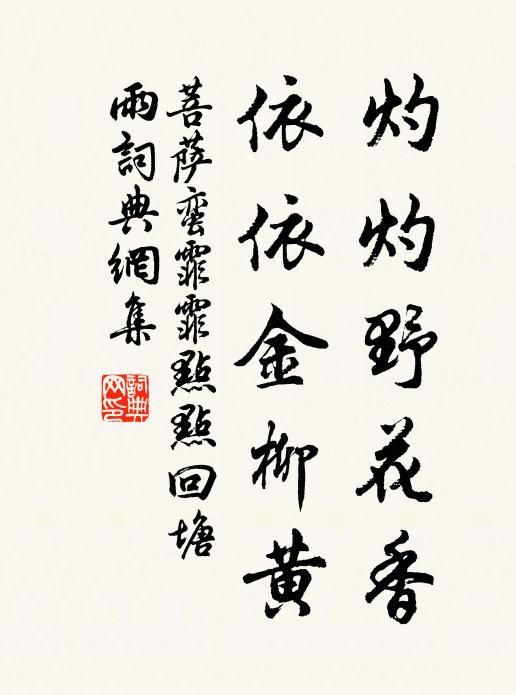 灼灼野花香
依依金柳黄
菩萨蛮霏霏點點回塘
雨詞典網集
詞典网印